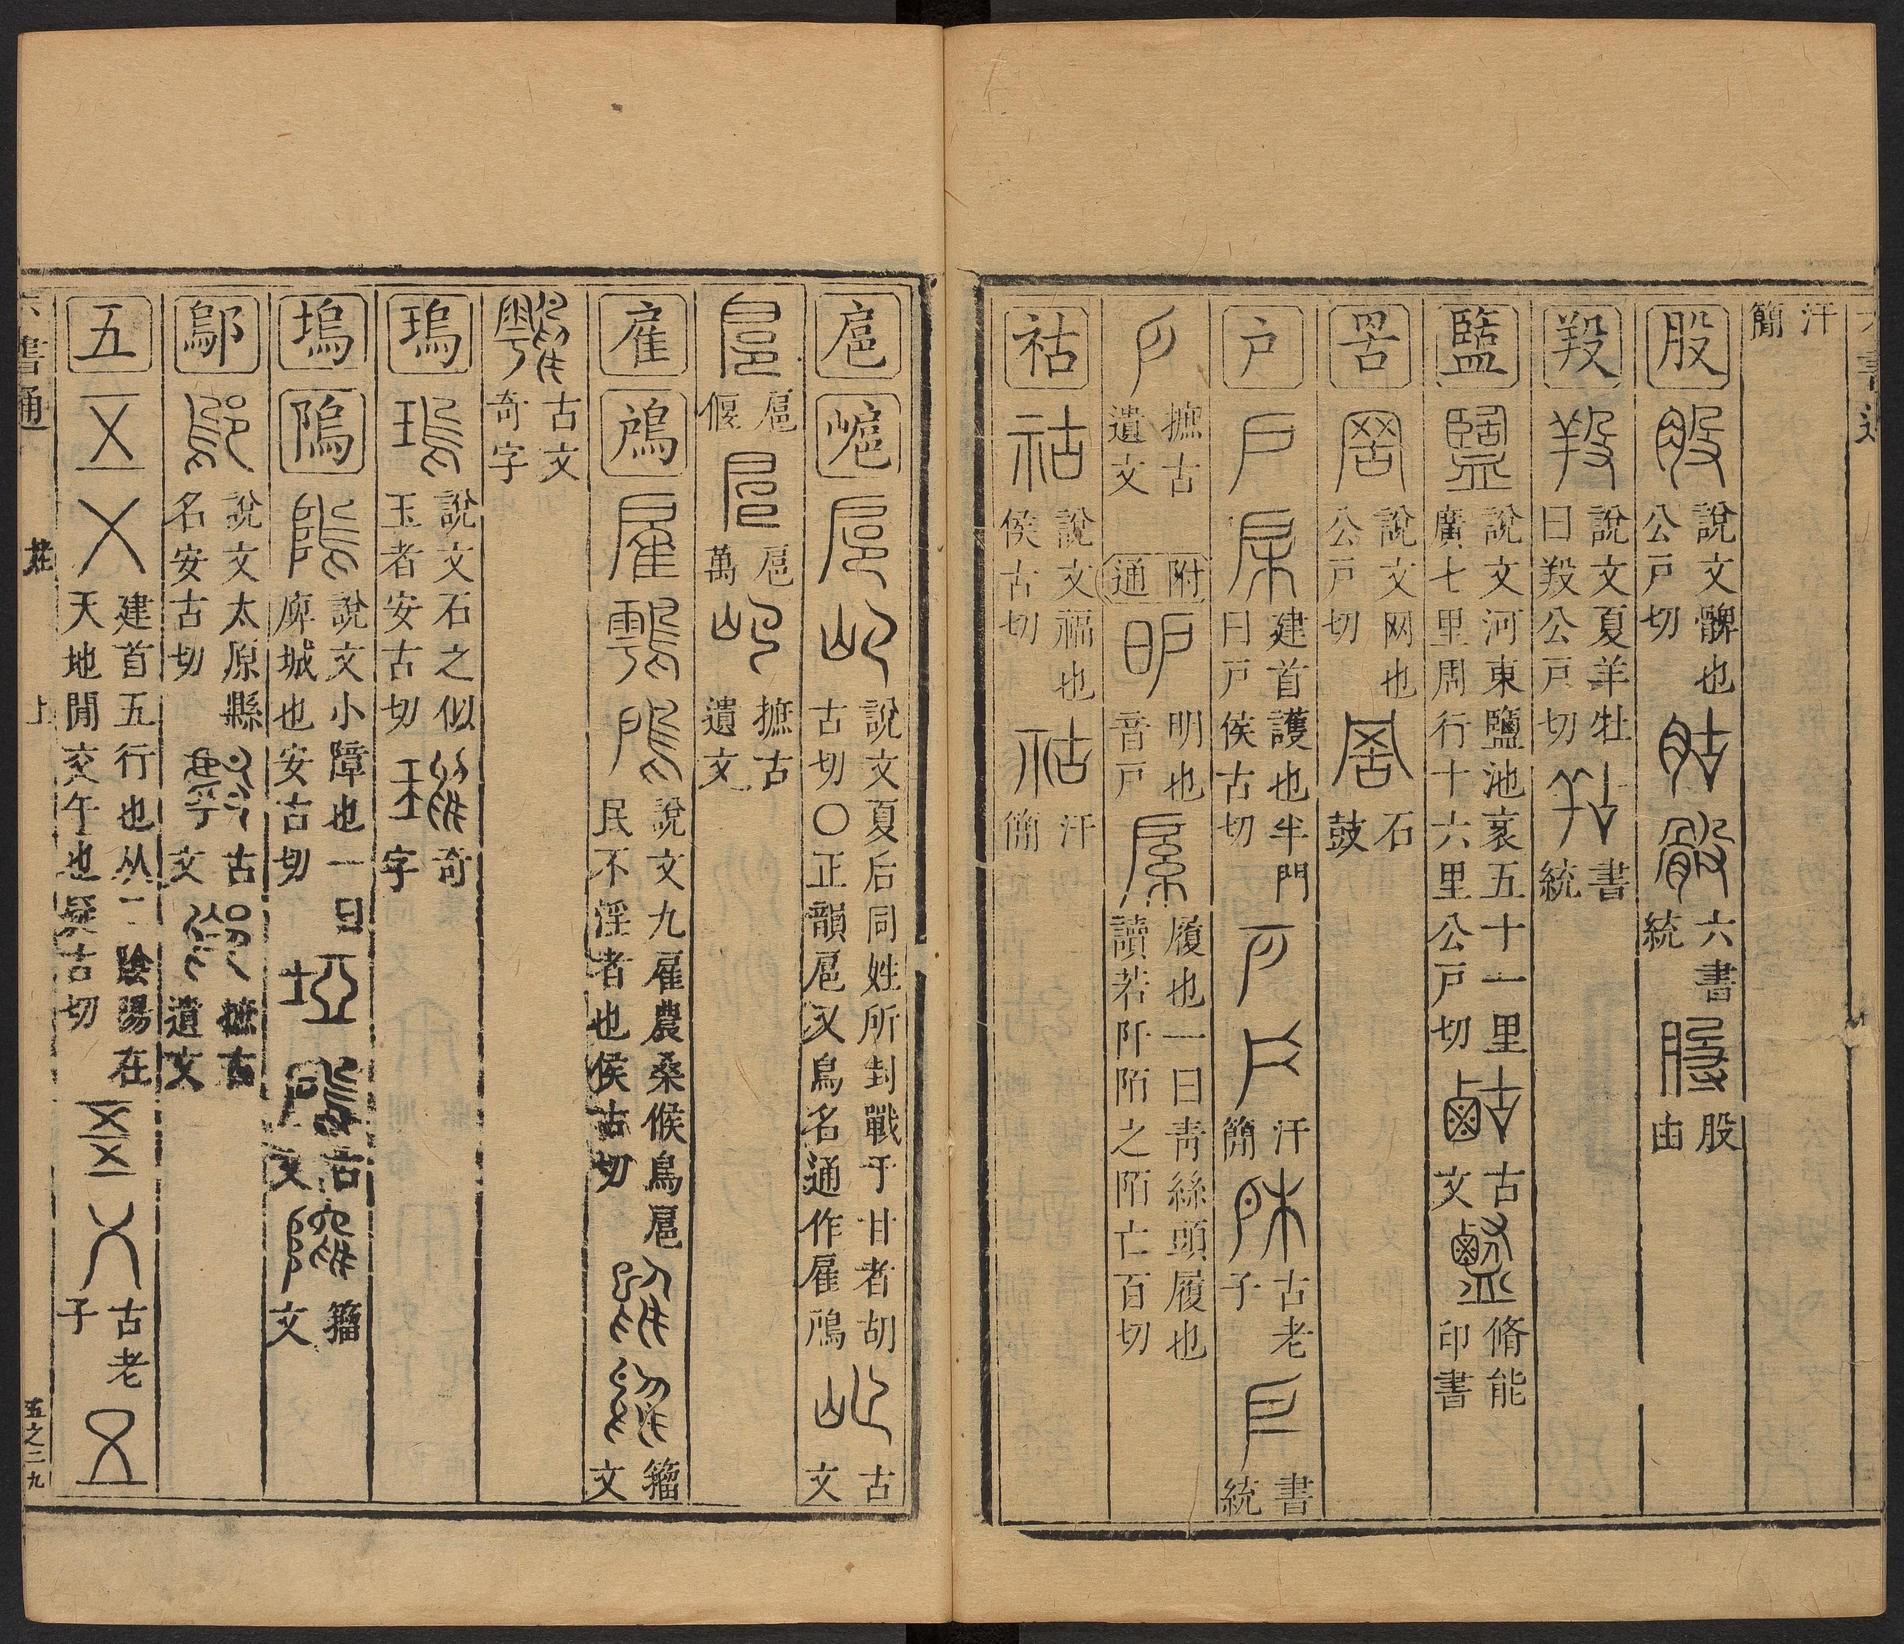 汗簡
股 說文髀也公戶切 六書統 股由
羖 說文夏羊牡曰羖公戶切 書統
盬 說文河東鹽池袤五十一里廣七里周行十六里公戶切 古文 脩能印書
罟 說文网也公戶切 石鼓
戶 建首護也半門曰戶侯古切 汗簡 古老子 書統
摭古遺文 附通 明也音戶 履也一曰青絲頭履也讀若阡陌之陌亡百切
祜 說文福也侯古切 汗簡
扈 㠋 說文夏后同姓所封戰于甘者胡古切〇正韻扈又鳥名通作雇鳸 古文
扈偃 扈萬 摭古遺文
雇 鳸 說文九雇農桑候鳥扈民不淫者也侯古切 籀文
古文奇字
瑦 說文石之似玉者安古切 奇字
塢 隖 說文小障也一曰庳城也安古切 古文 籀文
鄔 說文太原縣名安古切 古文 摭古遺文
五 建首五行也从二陰陽在天地閒交午也疑古切 古老子
六書通 上 五之二九